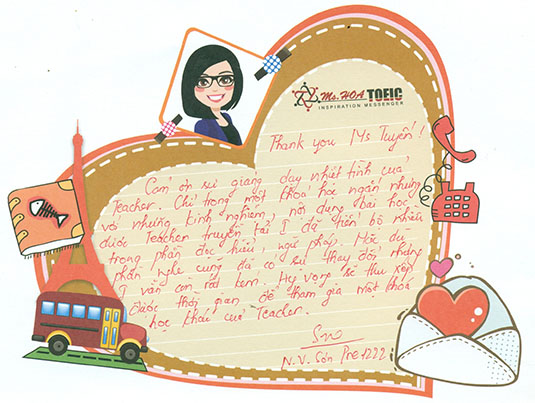 Ms. HOA TOEIC
INSPIRATION MESSENGER
Thank you Ms Tuyến!
Cảm ơn sự giảng dạy nhiệt tình của
Teacher. Chỉ trong một khóa học ngắn nhưng
với những kinh nghiệm, nội dung bài học
được Teacher truyền tải I đã tiến bộ nhiều
trong phần đọc hiểu, ngữ pháp. Mặc dù
phần nghe cũng đã có sự thay đổi nhưng
I vẫn còn rất kém. Hy vọng sẽ thu xếp
được thời gian để tham gia một khóa
học khác của Teacher.
N.V. Sơn Pre 1222